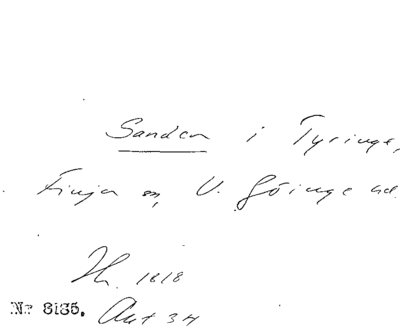 Sanden i Tyringe,
Finja sn, V. Göinge hd.
Hr. 1818
Nr 8135. Akt 34